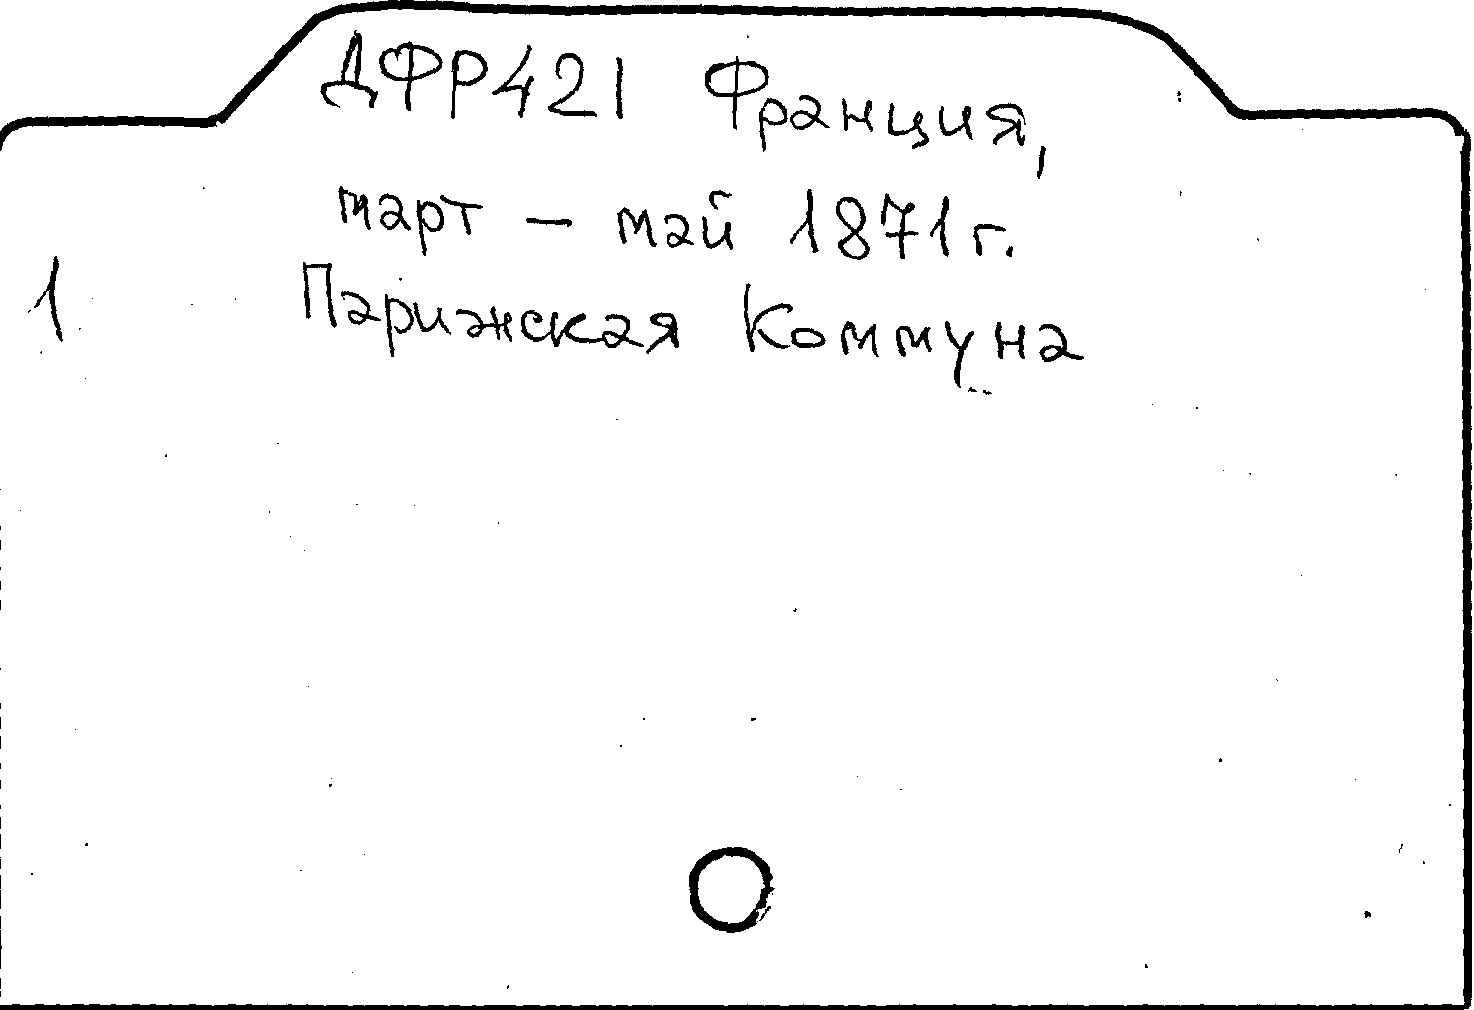 ДФР421 Франция,
март – май 1871 г.
1
Парижская Коммуна